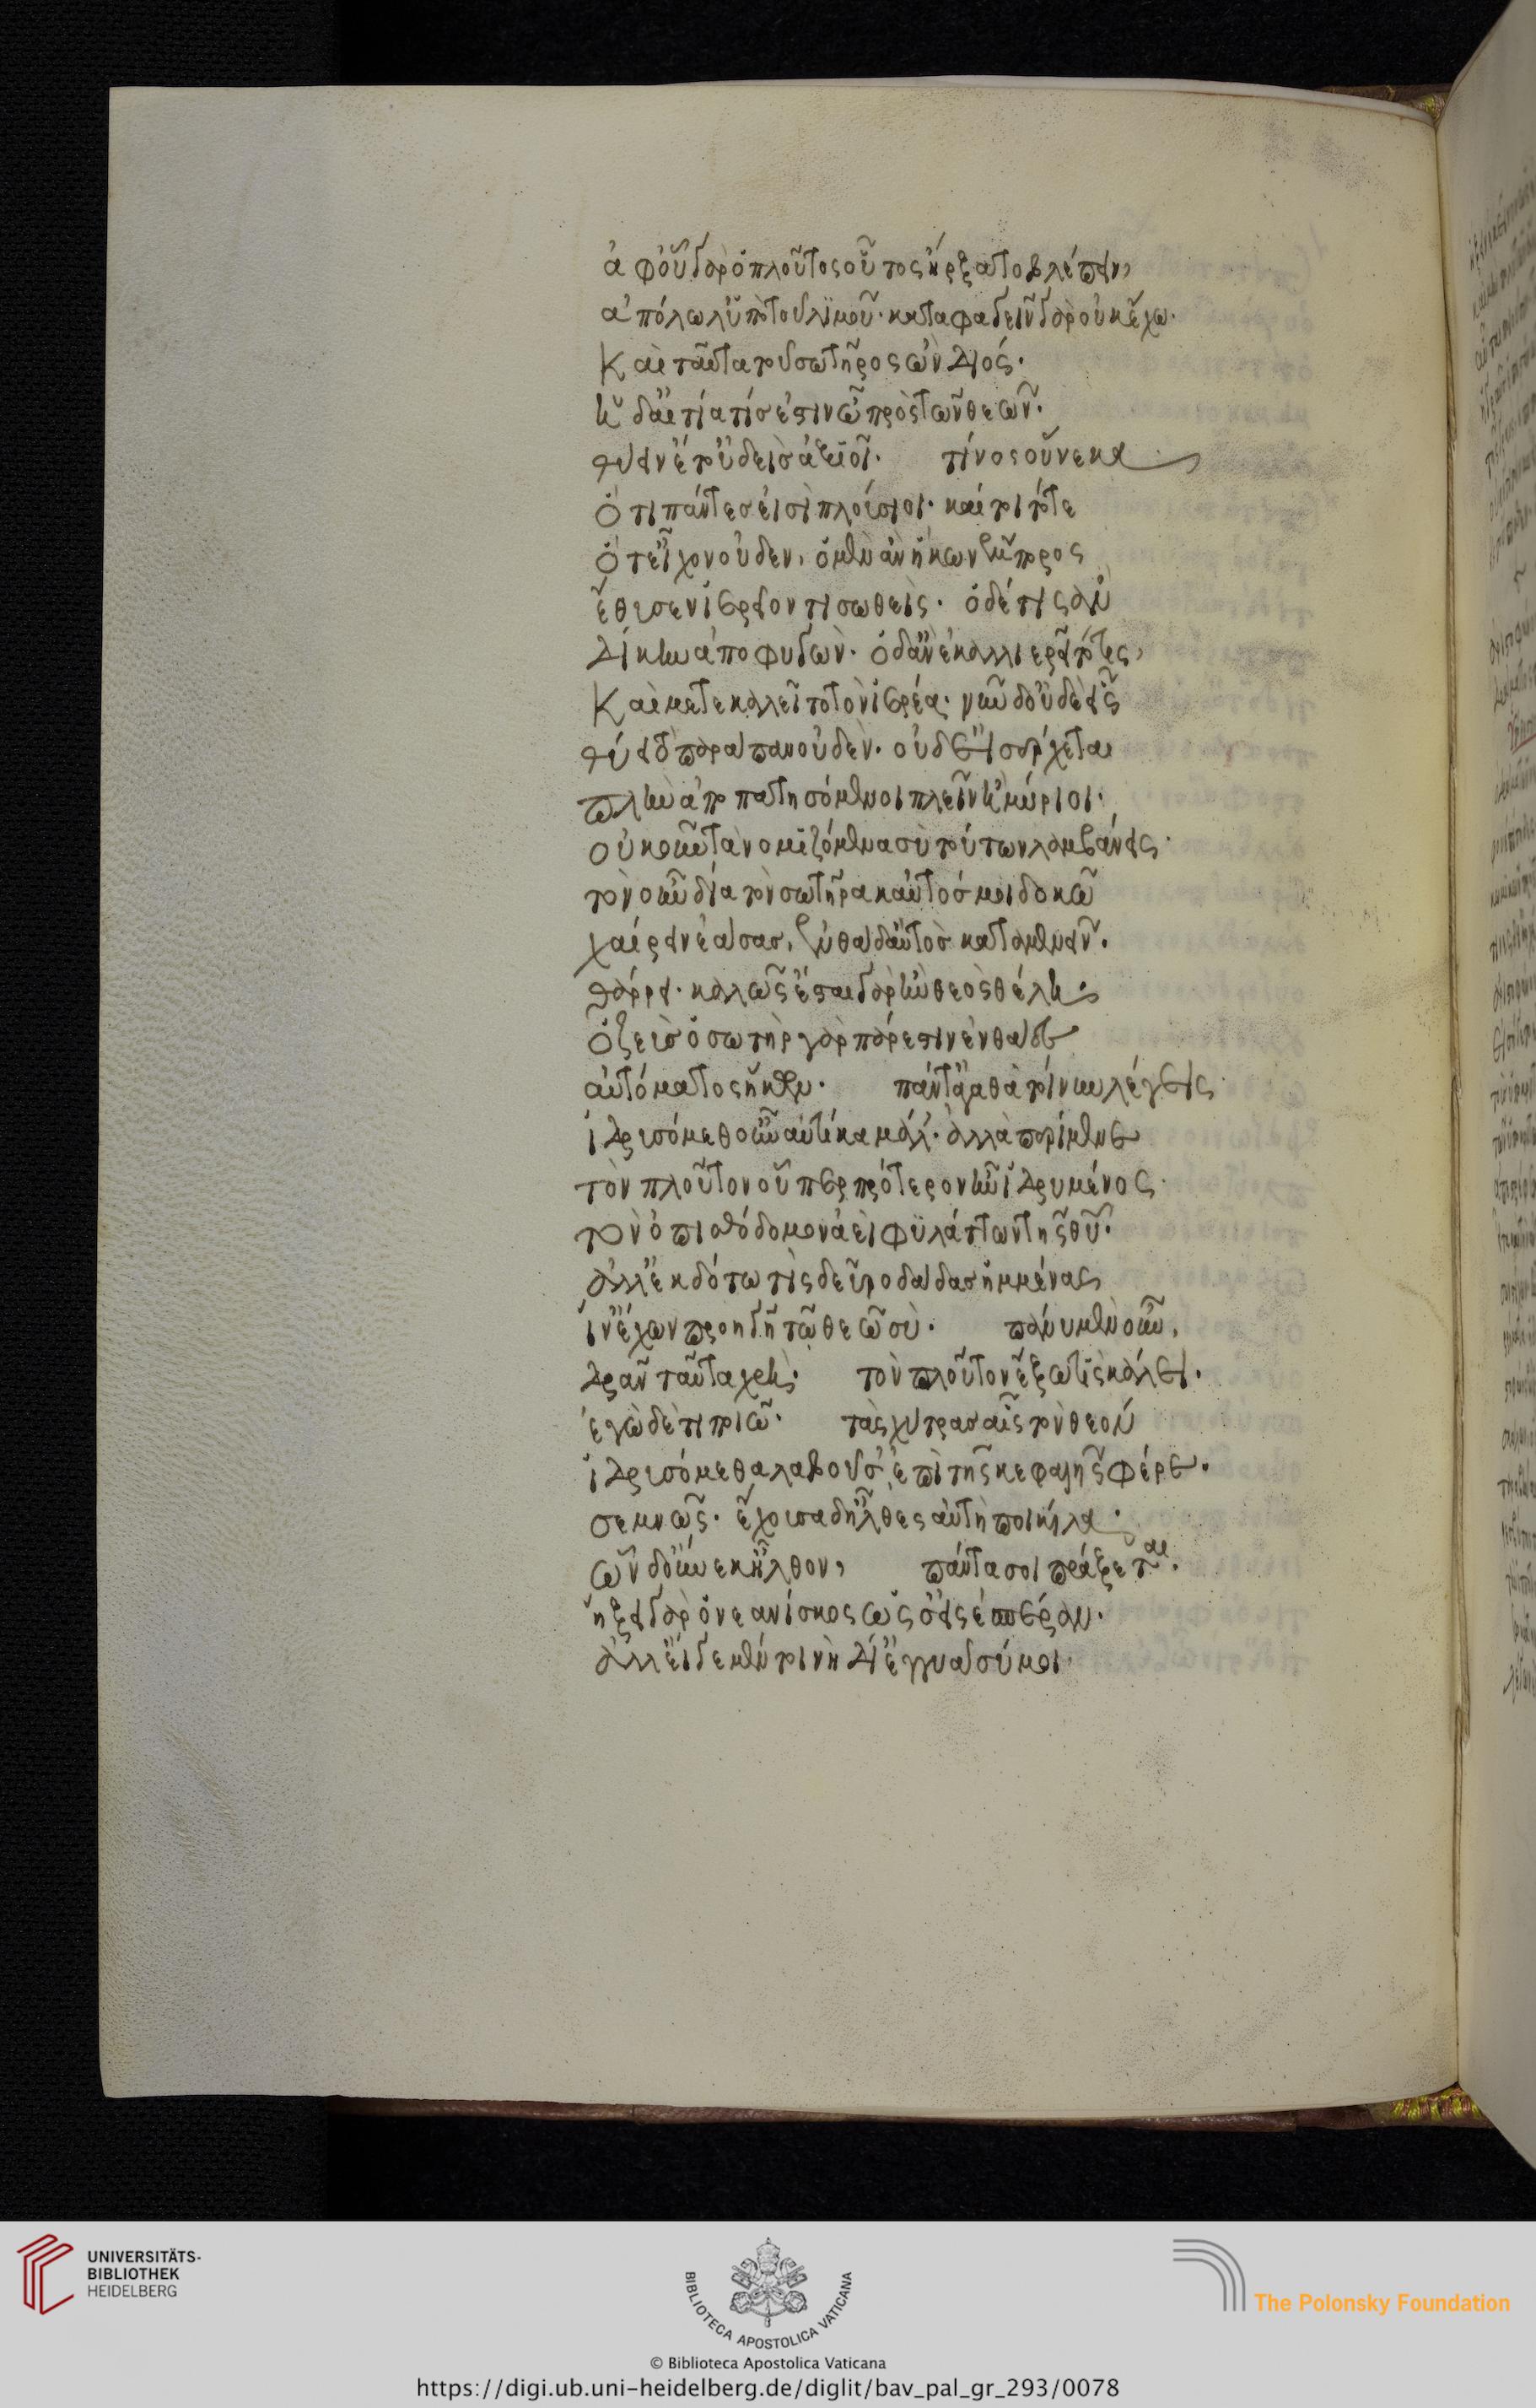 ἀφ' οὗ γὰρ ὁ πλοῦτος οὗτος ἤρξατο βλέπειν,
ἀπόλωλ' ὑπὸ τοῦ λιμοῦ· καταφαγεῖν γὰρ οὐκ ἔχω·
Καὶ ταῦτα τοῦ σωτῆρος ὢν διός·
ἡ δ' αἰτία τίς ἐστιν ὦ πρὸς τῶν θεῶν·
θύειν ἔτ' οὐδεὶς ἀξιοῖ· τίνος οὕνεκα
ὅτι πάντες εἰσὶ πλούσιοι· καί τοι τότε
ὅτ' εἶχον οὐδεν, ὁ μὲν ἂν ἥκων ἔμπορος
ἔθυσεν ἱερεῖον τι σωθεὶς· ὁ δέ τις ἂν
δίκην ἀποφυγὼν· ὁ δ' ἂν ἐκαλλιερεῖτό τις,
Καὶ μετεκαλεῖτο τὸν ἱερέα· νῦν δ' οὐδὲ εἷς
θύει τὸ παράπαν οὐδὲν· οὐδ' εἰσέρχεται
πλὴν ἀποπατησόμενοι πλεῖν ἢ μύριοι·
οὐκοῦν τὰ νομιζόμενα σὺ τούτων λαμβάνεις·
τὸν οὖν δία τὸν σωτῆρα καὐτός μοι δοκῶ
χαίρειν ἐάσας, ἐνθάδ' αὐτὸς καταμένειν·
θάρρει· καλῶς ἔσται γὰρ ἢν θεὸς θέλη·
ὁ ζεὺς ὁ σωτὴρ γὰρ πάρεστιν ἐνθάδε
αὐτόματος ἥκων· πάντ' ἀγαθὰ τοίνυν λέγεις
ἱδρυσόμεθ' οὖν αὐτίκα μάλ'· ἀλλὰ περίμενε
τὸν πλοῦτον οὗπερ πρότερον ἦν ἱδρυμένος·
τὸν ὀπισθόδομον ἀεὶ φυλάττων τῆς θεοῦ·
ἀλλ' ἐκδότω τὶς δεῦρο δᾶδας ἡμμένας
ἵν' ἔχων προηγῆ τῷ θεῶ σὺ· πάνυ μὲν οὖν,
δρᾶν ταῦτα χρὴ· τὸν πλοῦτον ἔξω τὶς κάλει·
ἐγὼ δὲ τί ποιῶ· τὰς χύτρας αἷς τὸν θεὸν
ἱδρυσόμεθα λαβοῦσ' ἐπὶ τῆς κεφαλῆς φέρε·
σεμνῶς· ἔχουσα δ' ἦλθες αὐτὴ ποικίλα·
ὧν δ' οὕνεκ' ἦλθον, πάντα σοι πράξεται·
ἥξει γὰρ ὁ νεανίσκος ὡς σ' εἰς ἑσπέραν·
ἀλλ' εἴ γε μέντοι νὴ δί' ἐγγυᾶ σύ μοι
UNIVERSITÄTS-
BIBLIOTHEK
HEIDELBERG
BIBLIOTECA APOSTOLICA VATICANA
The Polonsky Foundation
© Biblioteca Apostolica Vaticana
https://digi.ub.uni-heidelberg.de/diglit/bav_pal_gr_293/0078